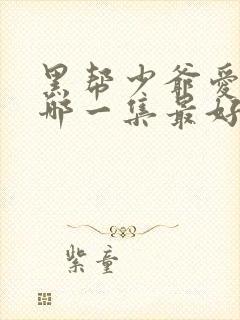 黑帮少爷爱
哪一集最好
紫童